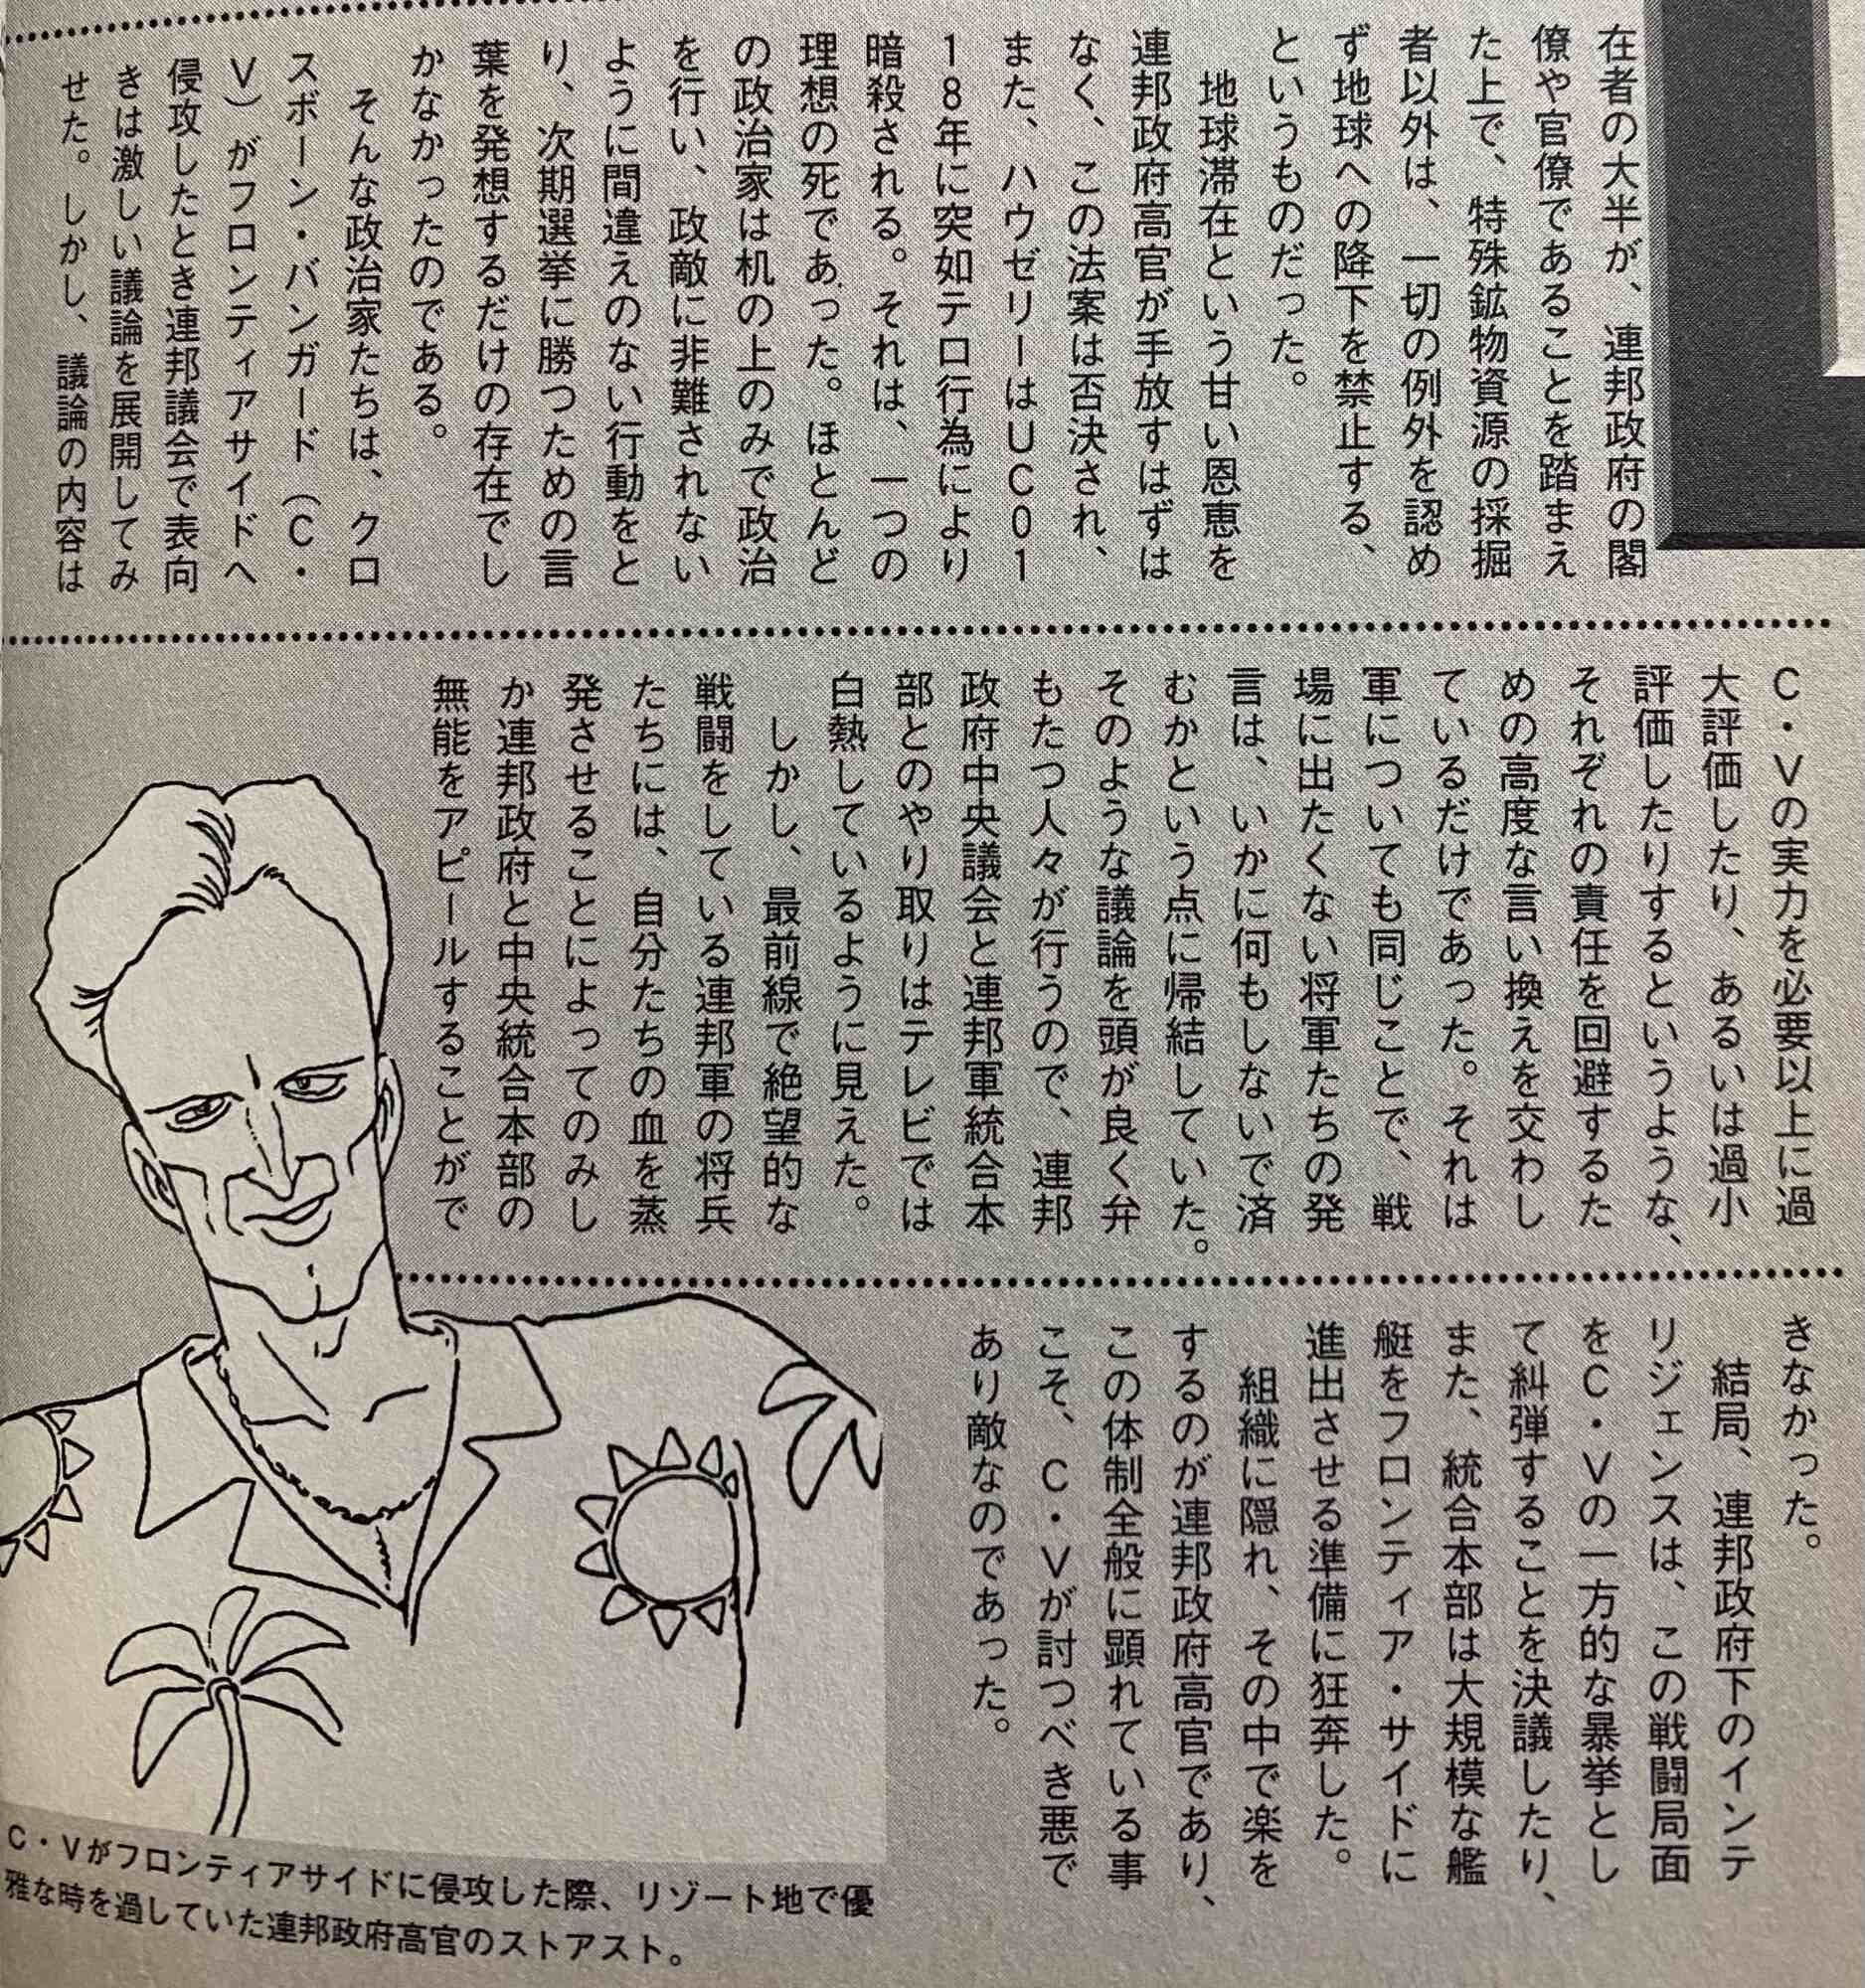 在者の大半が、連邦政府の閣
僚や官僚であることを踏まえ
た上で、特殊鉱物資源の採掘
者以外は、一切の例外を認め
ず地球への降下を禁止する、
というものだった。
地球滞在という甘い恩恵を
連邦政府高官が手放すはずは
なく、この法案は否決され、
また、ハウゼリーはUC01
18年に突如テロ行為により
暗殺される。それは、一つの
理想の死であった。ほとんど
の政治家は机の上のみで政治
を行い、政敵に非難されない
ように間違えのない行動をと
り、次期選挙に勝つための言
葉を発想するだけの存在でし
かなかったのである。
そんな政治家たちは、クロ
スボーン・バンガード（C・
V）がフロンティアサイドへ
侵攻したとき連邦議会で表向
きは激しい議論を展開してみ
せた。しかし、議論の内容は
C・Vの実力を必要以上に過
大評価したり、あるいは過小
評価したりするというような、
それぞれの責任を回避するた
めの高度な言い換えを交わし
ているだけであった。それは
軍についても同じことで、戦
場に出たくない将軍たちの発
言は、いかに何もしないで済
むかという点に帰結していた。
そのような議論を頭が良く弁
もたつ人々が行うので、連邦
政府中央議会と連邦軍統合本
部とのやり取りはテレビでは
白熱しているように見えた。
しかし、最前線で絶望的な
戦闘をしている連邦軍の将兵
たちには、自分たちの血を蒸
発させることによってのみし
か連邦政府と中央統合本部の
無能をアピールすることがで
きなかった。
結局、連邦政府下のインテ
リジェンスは、この戦闘局面
をC・Vの一方的な暴挙とし
て糾弾することを決議したり、
また、統合本部は大規模な艦
艇をフロンティア・サイドに
進出させる準備に狂奔した。
組織に隠れ、その中で楽を
するのが連邦政府高官であり、
この体制全般に顕れている事
こそ、C・Vが討つべき悪で
あり敵なのであった。
C・Vがフロンティアサイドに侵攻した際、リゾート地で優
雅な時を過していた連邦政府高官のストアスト。